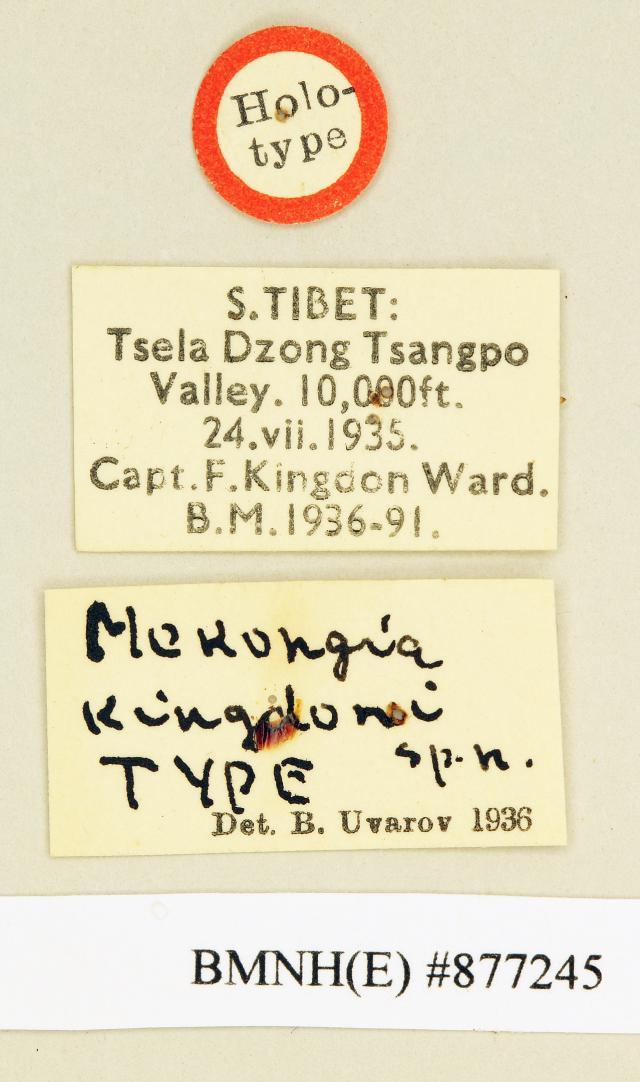 Holo-
type
S.TIBET:
Tsela Dzong Tsangpo
Valley. 10,000ft.
24.vii.1935.
Capt.F.Kingdon Ward.
B.M.1936-91.
Mekongia
kingdoni
TYPE sp.n.
Det. B. Uvarov 1936
BMNH(E) #877245